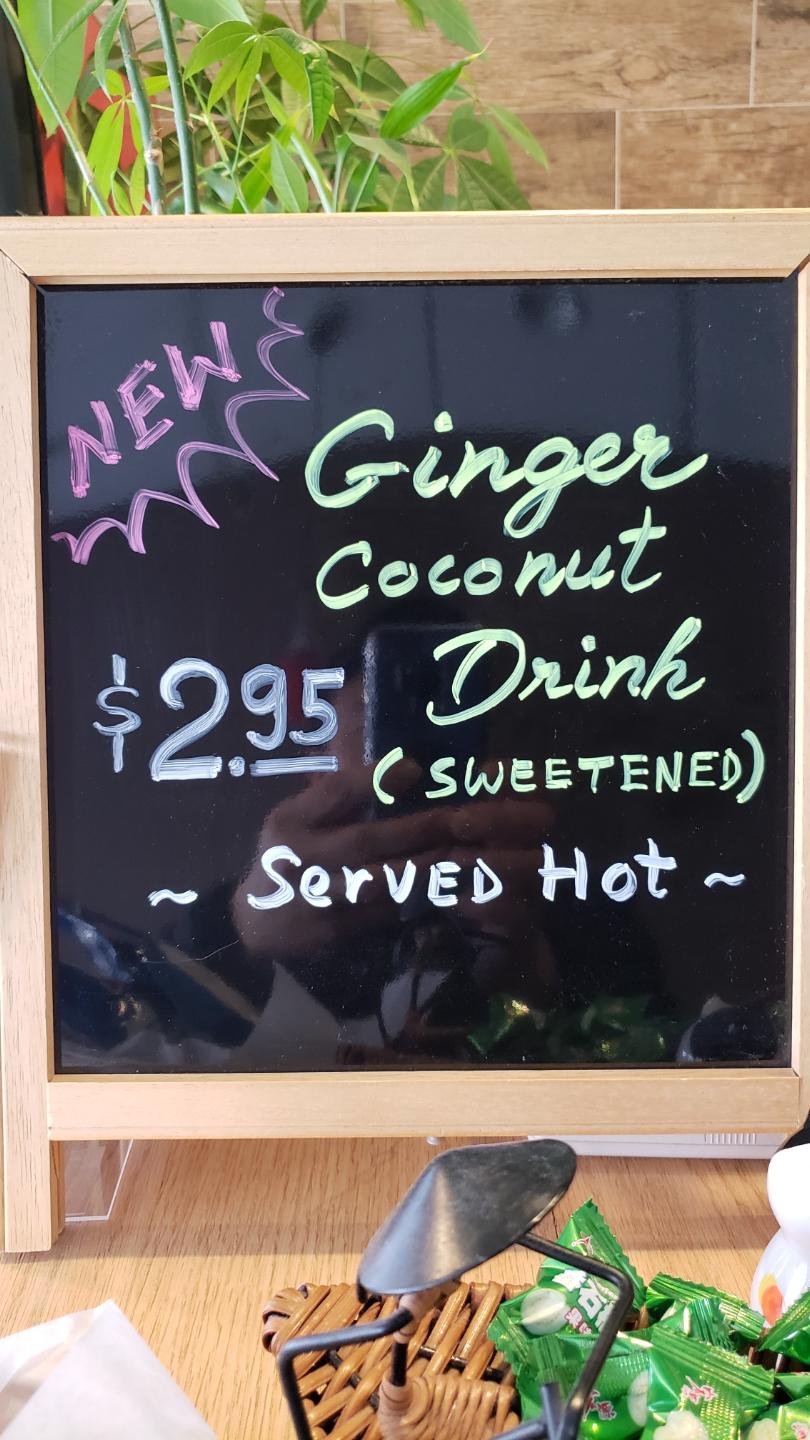 NEW
Ginger
Coconut
Drink
$2.95
(SWEETENED)
~ SERVED Hot ~